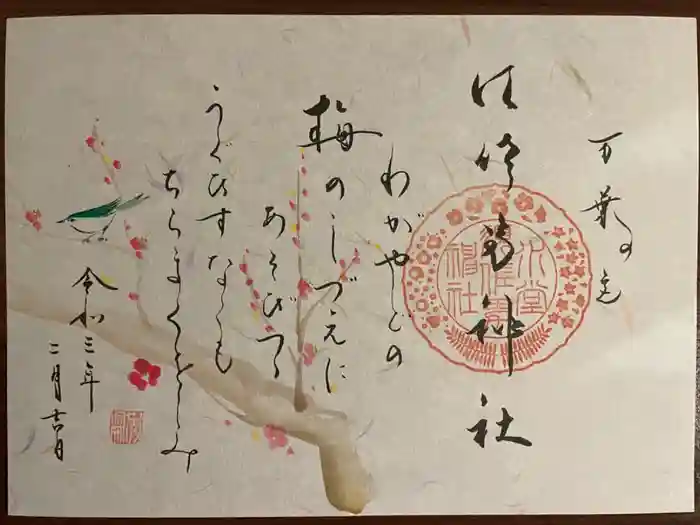 万葉の
須佐男神社
わがやどの
梅のしづえに
あそびつつ
うぐひすなくも
ちらまくをしみ
令和三年
二月吉日
水堂
須佐男
神社